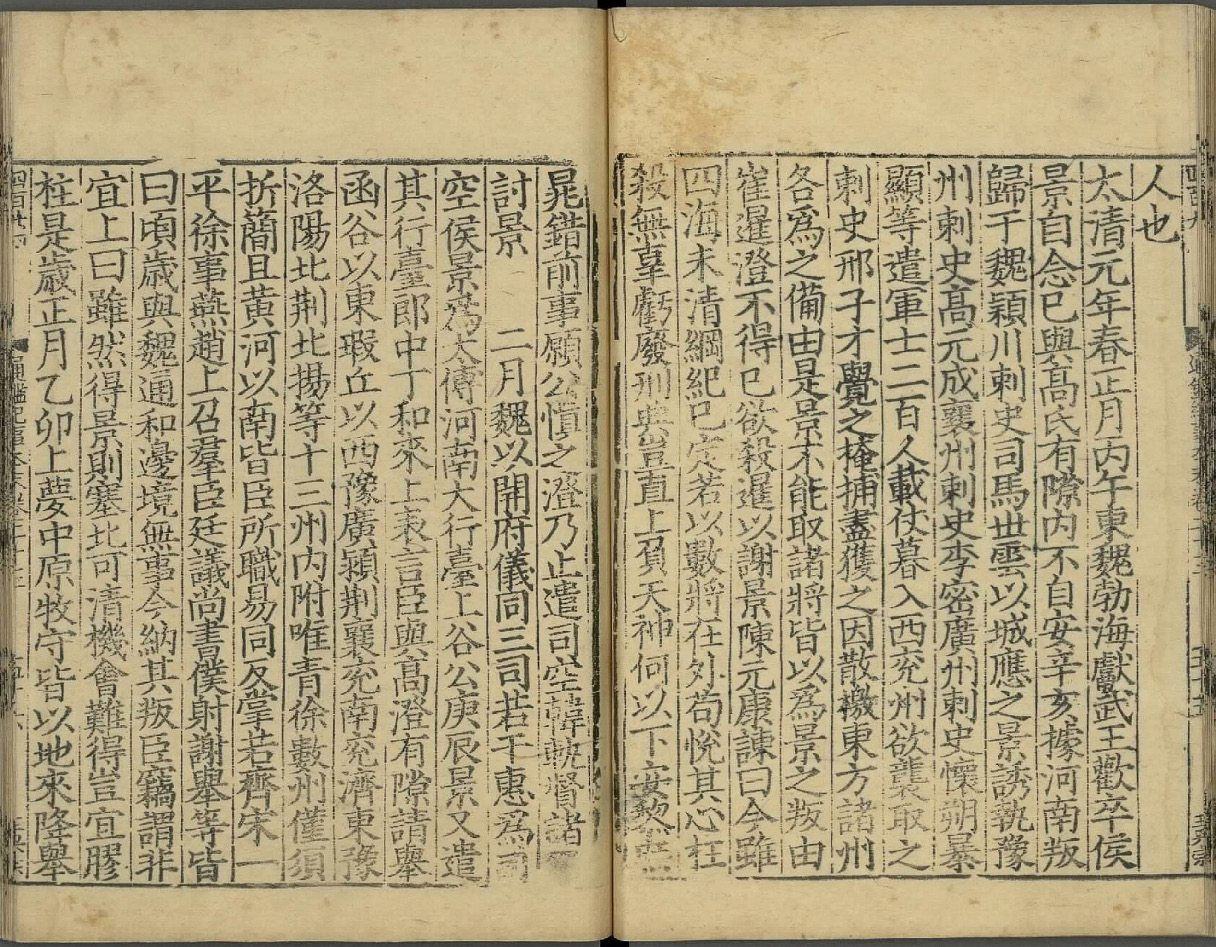 人也
太清元年春正月丙午東魏勃海獻武王歡卒侯
景自念已與高氏有隙内不自安辛亥據河南叛
歸于魏潁川刺史司馬世雲以城應之景誘執豫
州刺史高元成襄州刺史李密廣州刺史懷朔暴
顯等遣軍士二百人載仗暮入西兖州欲襲取之
刺史邢子才覺之掩捕盡獲之因散檄東方諸州
各爲之備由是景不能取諸將皆以爲景之叛由
崔暹澄不得已欲殺暹以謝景陳元康諫曰今雖
四海未清綱紀已定若以數將在外苟悅其心枉
殺無辜虧廢刑典豈直上負天神何以下安黎
晁錯前事願公慎之澄乃止遣司空韓軌督諸
討景 二月魏以開府儀同三司若干惠爲司
空侯景爲太傅河南大行臺上谷公庚辰景又遣
其行臺郎中丁和來上表言臣與高澄有隙請舉
函谷以東瑕丘以西豫廣潁荆襄兖南兖濟東豫
洛陽北荆北揚等十三州内附唯青徐數州僅須
折簡且黄河以南皆臣所職易同反掌若齊宋一
平徐事燕趙上召羣臣廷議尚書僕射謝舉等皆
曰頃歲與魏通和邊境無事今納其叛臣竊謂非
宜上曰雖然得景則塞北可清機會難得豈宜膠
柱是歲正月乙卯上夢中原牧守皆以地來降舉